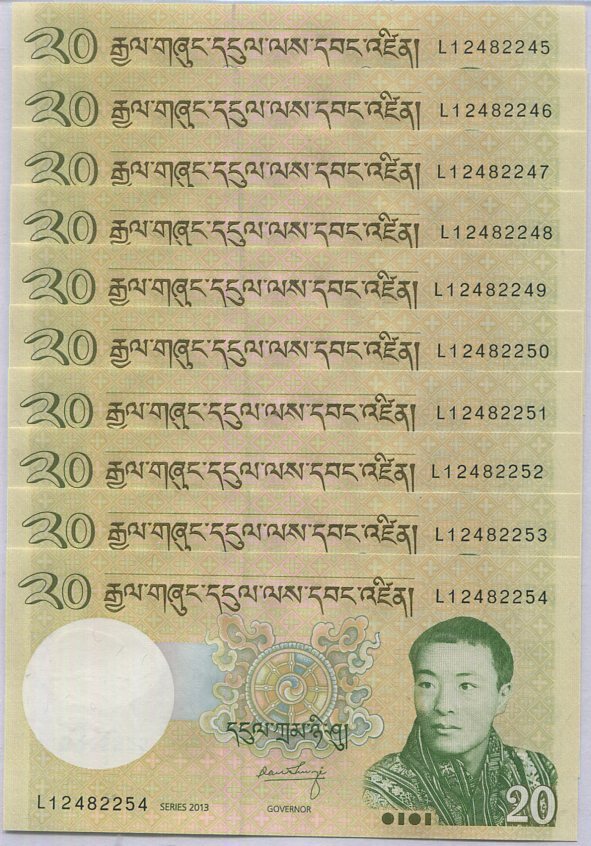 ༢༠ རྒྱལ་གཞུང་དངུལ་ལས་དབང་འཛིན། L12482245
༢༠ རྒྱལ་གཞུང་དངུལ་ལས་དབང་འཛིན། L12482246
༢༠ རྒྱལ་གཞུང་དངུལ་ལས་དབང་འཛིན། L12482247
༢༠ རྒྱལ་གཞུང་དངུལ་ལས་དབང་འཛིན། L12482248
༢༠ རྒྱལ་གཞུང་དངུལ་ལས་དབང་འཛིན། L12482249
༢༠ རྒྱལ་གཞུང་དངུལ་ལས་དབང་འཛིན། L12482250
༢༠ རྒྱལ་གཞུང་དངུལ་ལས་དབང་འཛིན། L12482251
༢༠ རྒྱལ་གཞུང་དངུལ་ལས་དབང་འཛིན། L12482252
༢༠ རྒྱལ་གཞུང་དངུལ་ལས་དབང་འཛིན། L12482253
༢༠ རྒྱལ་གཞུང་དངུལ་ལས་དབང་འཛིན། L12482254
དངུལ་ཀྲམ་ཉི་ཤུ།
L12482254 SERIES 2013 GOVERNOR 20